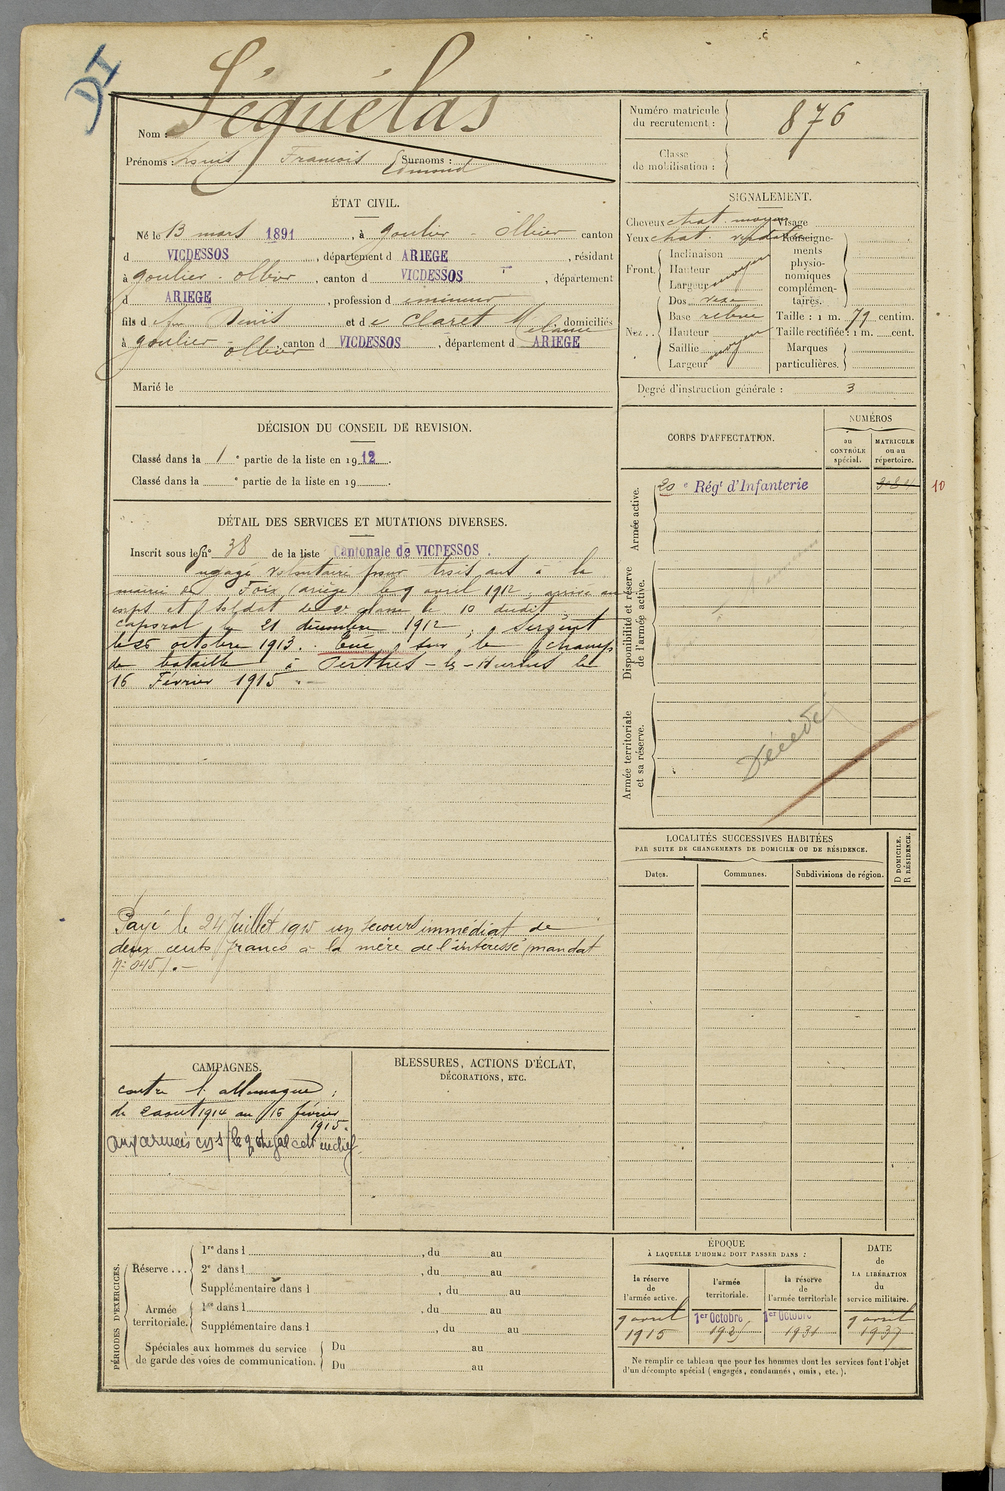 DI
Séguélas
Nom :
Prénoms : Louis François Surnoms :
Edmond
Numéro matricule
du recrutement :
876
Classe
de mobilisation :
ÉTAT CIVIL.
Né le 13 mars 1891, à goulier - olbier canton
d VICDESSOS, département d ARIEGE, résidant
à goulier - olbier, canton d VICDESSOS, département
d ARIEGE, profession de mineur
fils d Denis et de Claret Mélanie domiciliés
à goulier - olbier canton d VICDESSOS, département d ARIEGE
Marié le
SIGNALEMENT.
Cheveux chat. moyen Visage
Yeux chat. Renseigne-
ments
physio-
nomiques
complémen-
taires.
Front.
Inclinaison
Hauteur
Largeur moyen
Nez..
Dos
Base
Hauteur
Saillie moyen
Largeur
Taille : 1 m. 79 centim.
Taille rectifiée : 1 m. cent.
Marques
particulières.
Degré d'instruction générale : 3
DÉCISION DU CONSEIL DE REVISION.
Classé dans la 1e partie de la liste en 1912.
Classé dans la e partie de la liste en 19
CORPS D'AFFECTATION.
NUMÉROS
au
CONTRÔLE
spécial.
MATRICULE
ou au
répertoire.
Armée active.
20e Régt d'Infanterie
10
Disponibilité et réserve
de l'armée active.
Armée territoriale
et sa réserve.
Décédé
DÉTAIL DES SERVICES ET MUTATIONS DIVERSES.
Inscrit sous le n° 38 de la liste Cantonale de VICDESSOS.
Engagé volontaire pour trois ans à la
mairie de Foix (ariège) le 9 avril 1912, arrivé au
corps et soldat de 2e classe le 10 dudit
Caporal le 21 décembre 1912, Sergent
le 25 octobre 1913. Tué sur le champ
de bataille à Perthes-les-Hurlus le
16 Février 1915.
Payé le 24 Juillet 1915 un secours immédiat de
deux cents francs à la mère de l'intéressé (mandat
N° 045).
LOCALITÉS SUCCESSIVES HABITÉES
PAR SUITE DE CHANGEMENTS DE DOMICILE OU DE RÉSIDENCE.
Dates.
Communes.
Subdivisions de région.
D DOMICILE.
R RÉSIDENCE.
CAMPAGNES.
contre l'allemagne :
du 2 aout 1914 au 16 février
1915.
aux armées
BLESSURES, ACTIONS D'ÉCLAT,
DÉCORATIONS, ETC.
PÉRIODES D'EXERCICES.
Réserve ...
1re dans l , du au
2e dans l , du au
Supplémentaire dans l , du au
Armée
territoriale.
1re dans l , du au
Supplémentaire dans l , du au
Spéciales aux hommes du service
de garde des voies de communication.
Du au
Du au
ÉPOQUE
À LAQUELLE L'HOMME DOIT PASSER DANS :
la réserve
de
l'armée active.
l'armée
territoriale.
la réserve
de
l'armée territoriale
DATE
de
LA LIBÉRATION
du
service militaire.
9 avril
1915
1er Octobre
1925
1er Octobre
1931
9 avril
1937
Ne remplir ce tableau que pour les hommes dont les services font l'objet
d'un décompte spécial (engagés, condamnés, omis, etc.).